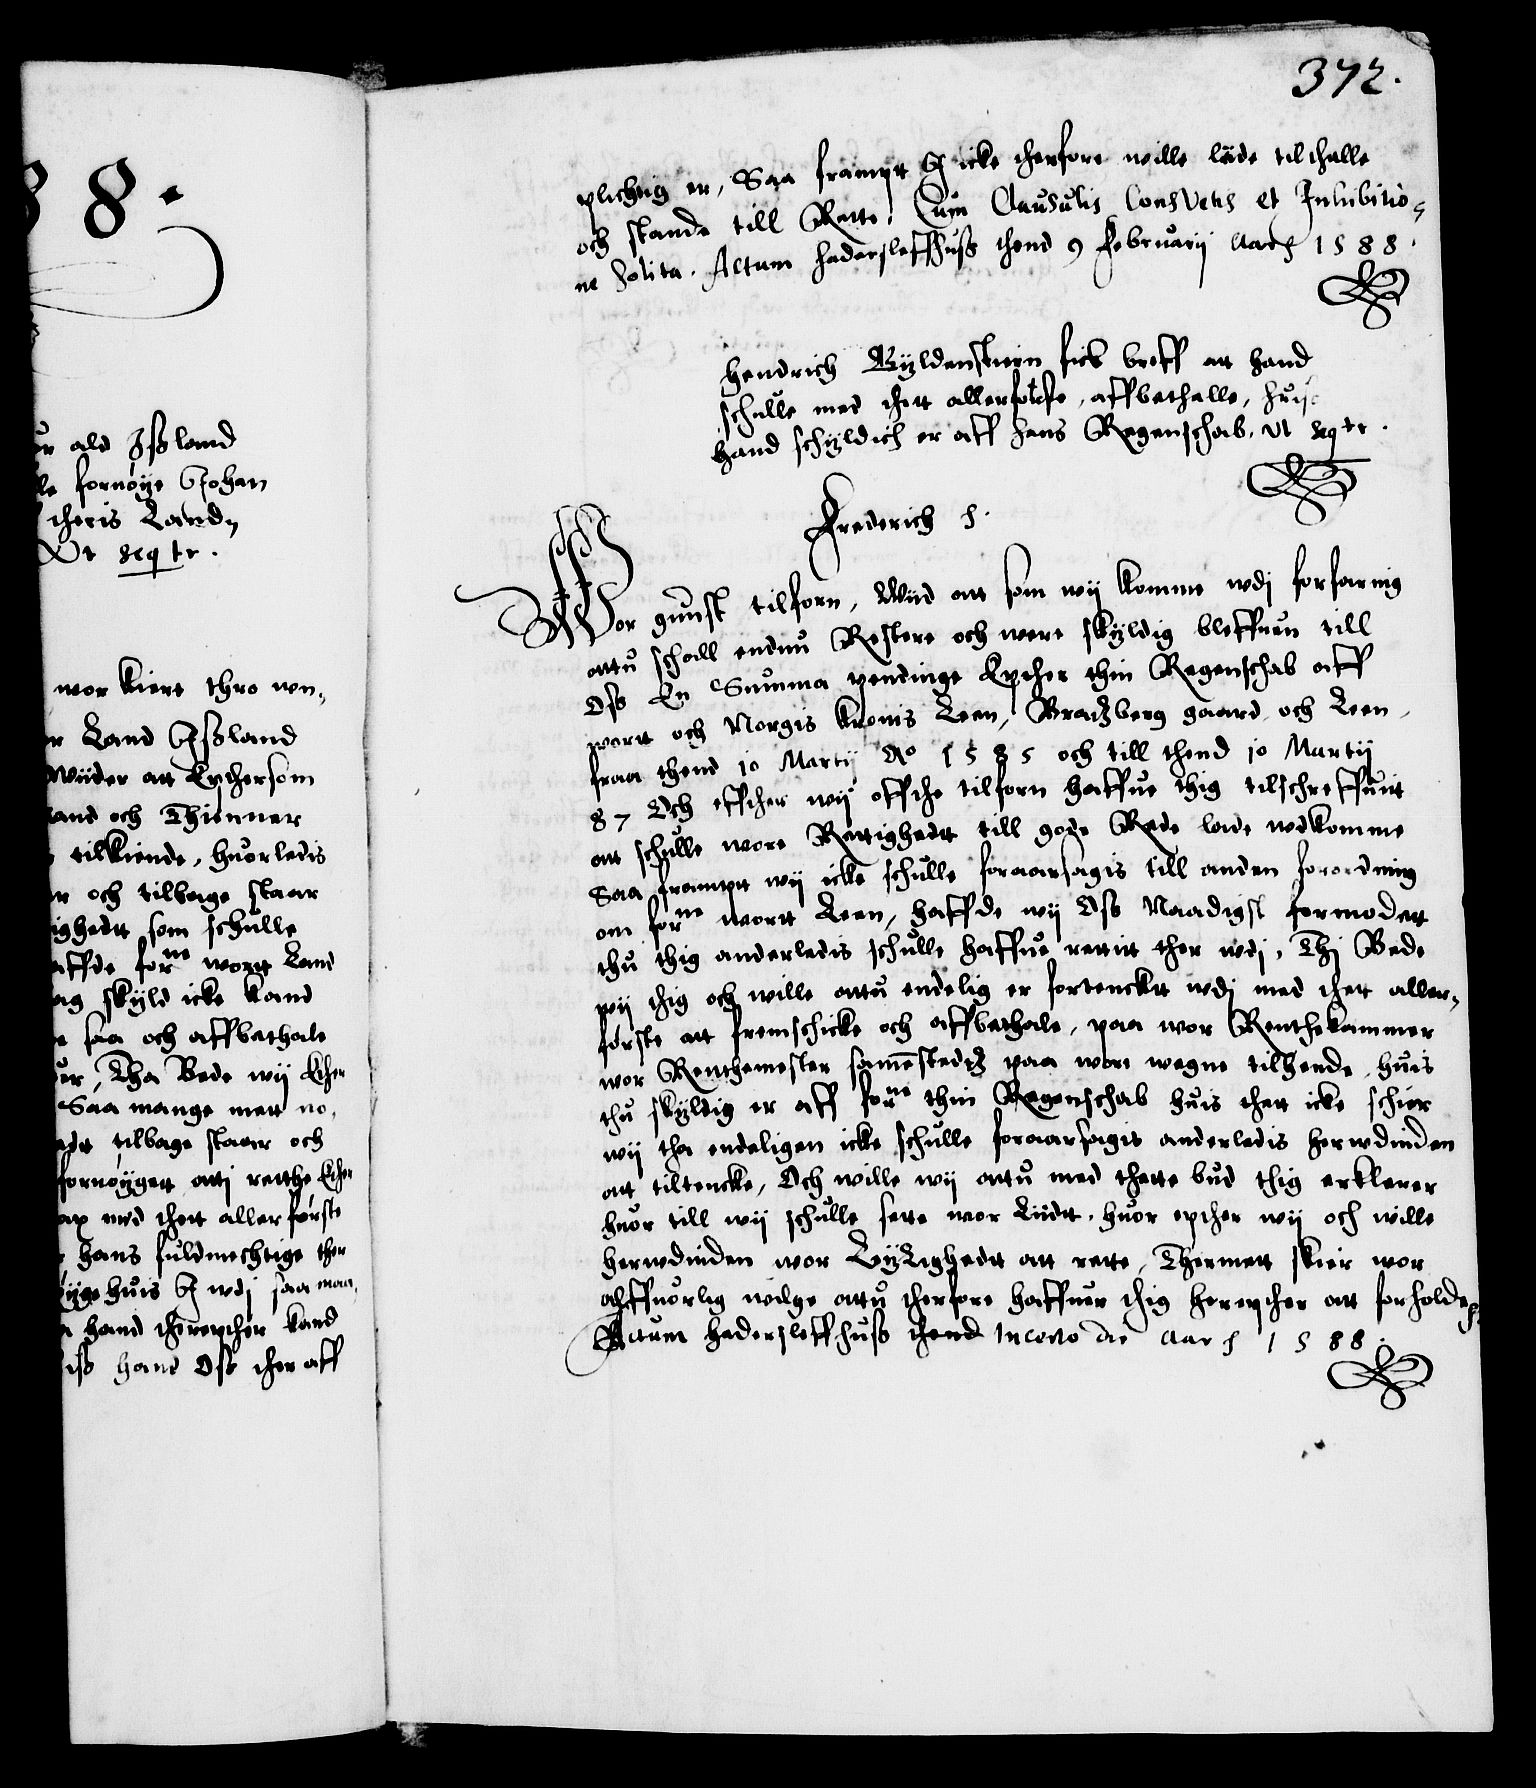 88.
ur ald Ißland
lle fornøye Johan
theris Land,
Vt seqtr.
wor kiere thro wn,
er Land Ißland
Wiider att Epthersom
land och Thienner
tilkiende, huorledis
er och tilbage staar
ighedt som schulle
affde forne wortt Land
ag skyld icke kand
e saa och affbethale
uer, Tha Bede wij Ether
Saa mange mett no,
edt tilbage staar och
fornøygett attj retthe Ether
ap med thett allerførste
r hans fuldmechtige ther
øyge huis J wdj saa man,
a hand therepther kand
iß hand Oß ther aff
372.
plichtig er, Saa frampt J icke therfore wille lade tilthalle
och stande till Rette. Cum Clausulis Consuetis et Inhibitio,
ne Solita. Actum Haderslefhuß thend 9 Februarij Aar 1588.
Hendrich Gyldenstiern fick breff att hand
schulle med thett allerførste, affbethalle, huis
hand schyldich er aff hans Regenschab. Vt seqtr.
Frederich
Wor gunst tilforn, Wiid att som wij komme wdj forfaring
attu schall endnu Restere och were skyldig bleffuen till
Oß En Summa pendinge Epther thin Regenschab aff
wortt och Norgis Kronis Leen, Bratzberg gaard och Leen,
fraa thend 10 Martij Ao 1585 och till thend 10 Martij
87 Och effther wij offthe tilforn haffue thig tilschreffuit
att schulle wore Rettighedt till gode Rede lade wdkomme
Saa frampt wij icke schulle foraarsagis till anden forordning
om forne wortt Leen, haffde wij Oß Naadigst formodett
thu thig anderledis schulle haffue rettit ther wdj, Thj Bede
wij thig och wille attu endelig er fortenckt wdj med thett aller,
første att fremschicke och affbethale, paa wor Renthekammer
wor Renthemester sammestedtz paa wore wegne tilhende, huis
thu skyldig er aff forne thin Regenschab huis thett icke schier
wij tha endeligen icke schulle foraarsagis anderledis herwdinden
att tiltencke, Och wille wij attu med thette bud thig erklerer
huor till wij schulle sette wor Liidt, huor epther wij och wille
herwdinden wor Leylighedt att rette, Thermett skier wor
alffuorlig wilge attu therfore haffuer thig herepther att forholde,
Actum Haderslefhuß thend in eodie Aar 1588.